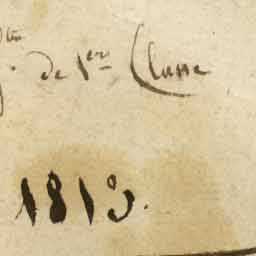 de 1er Classe
1813.